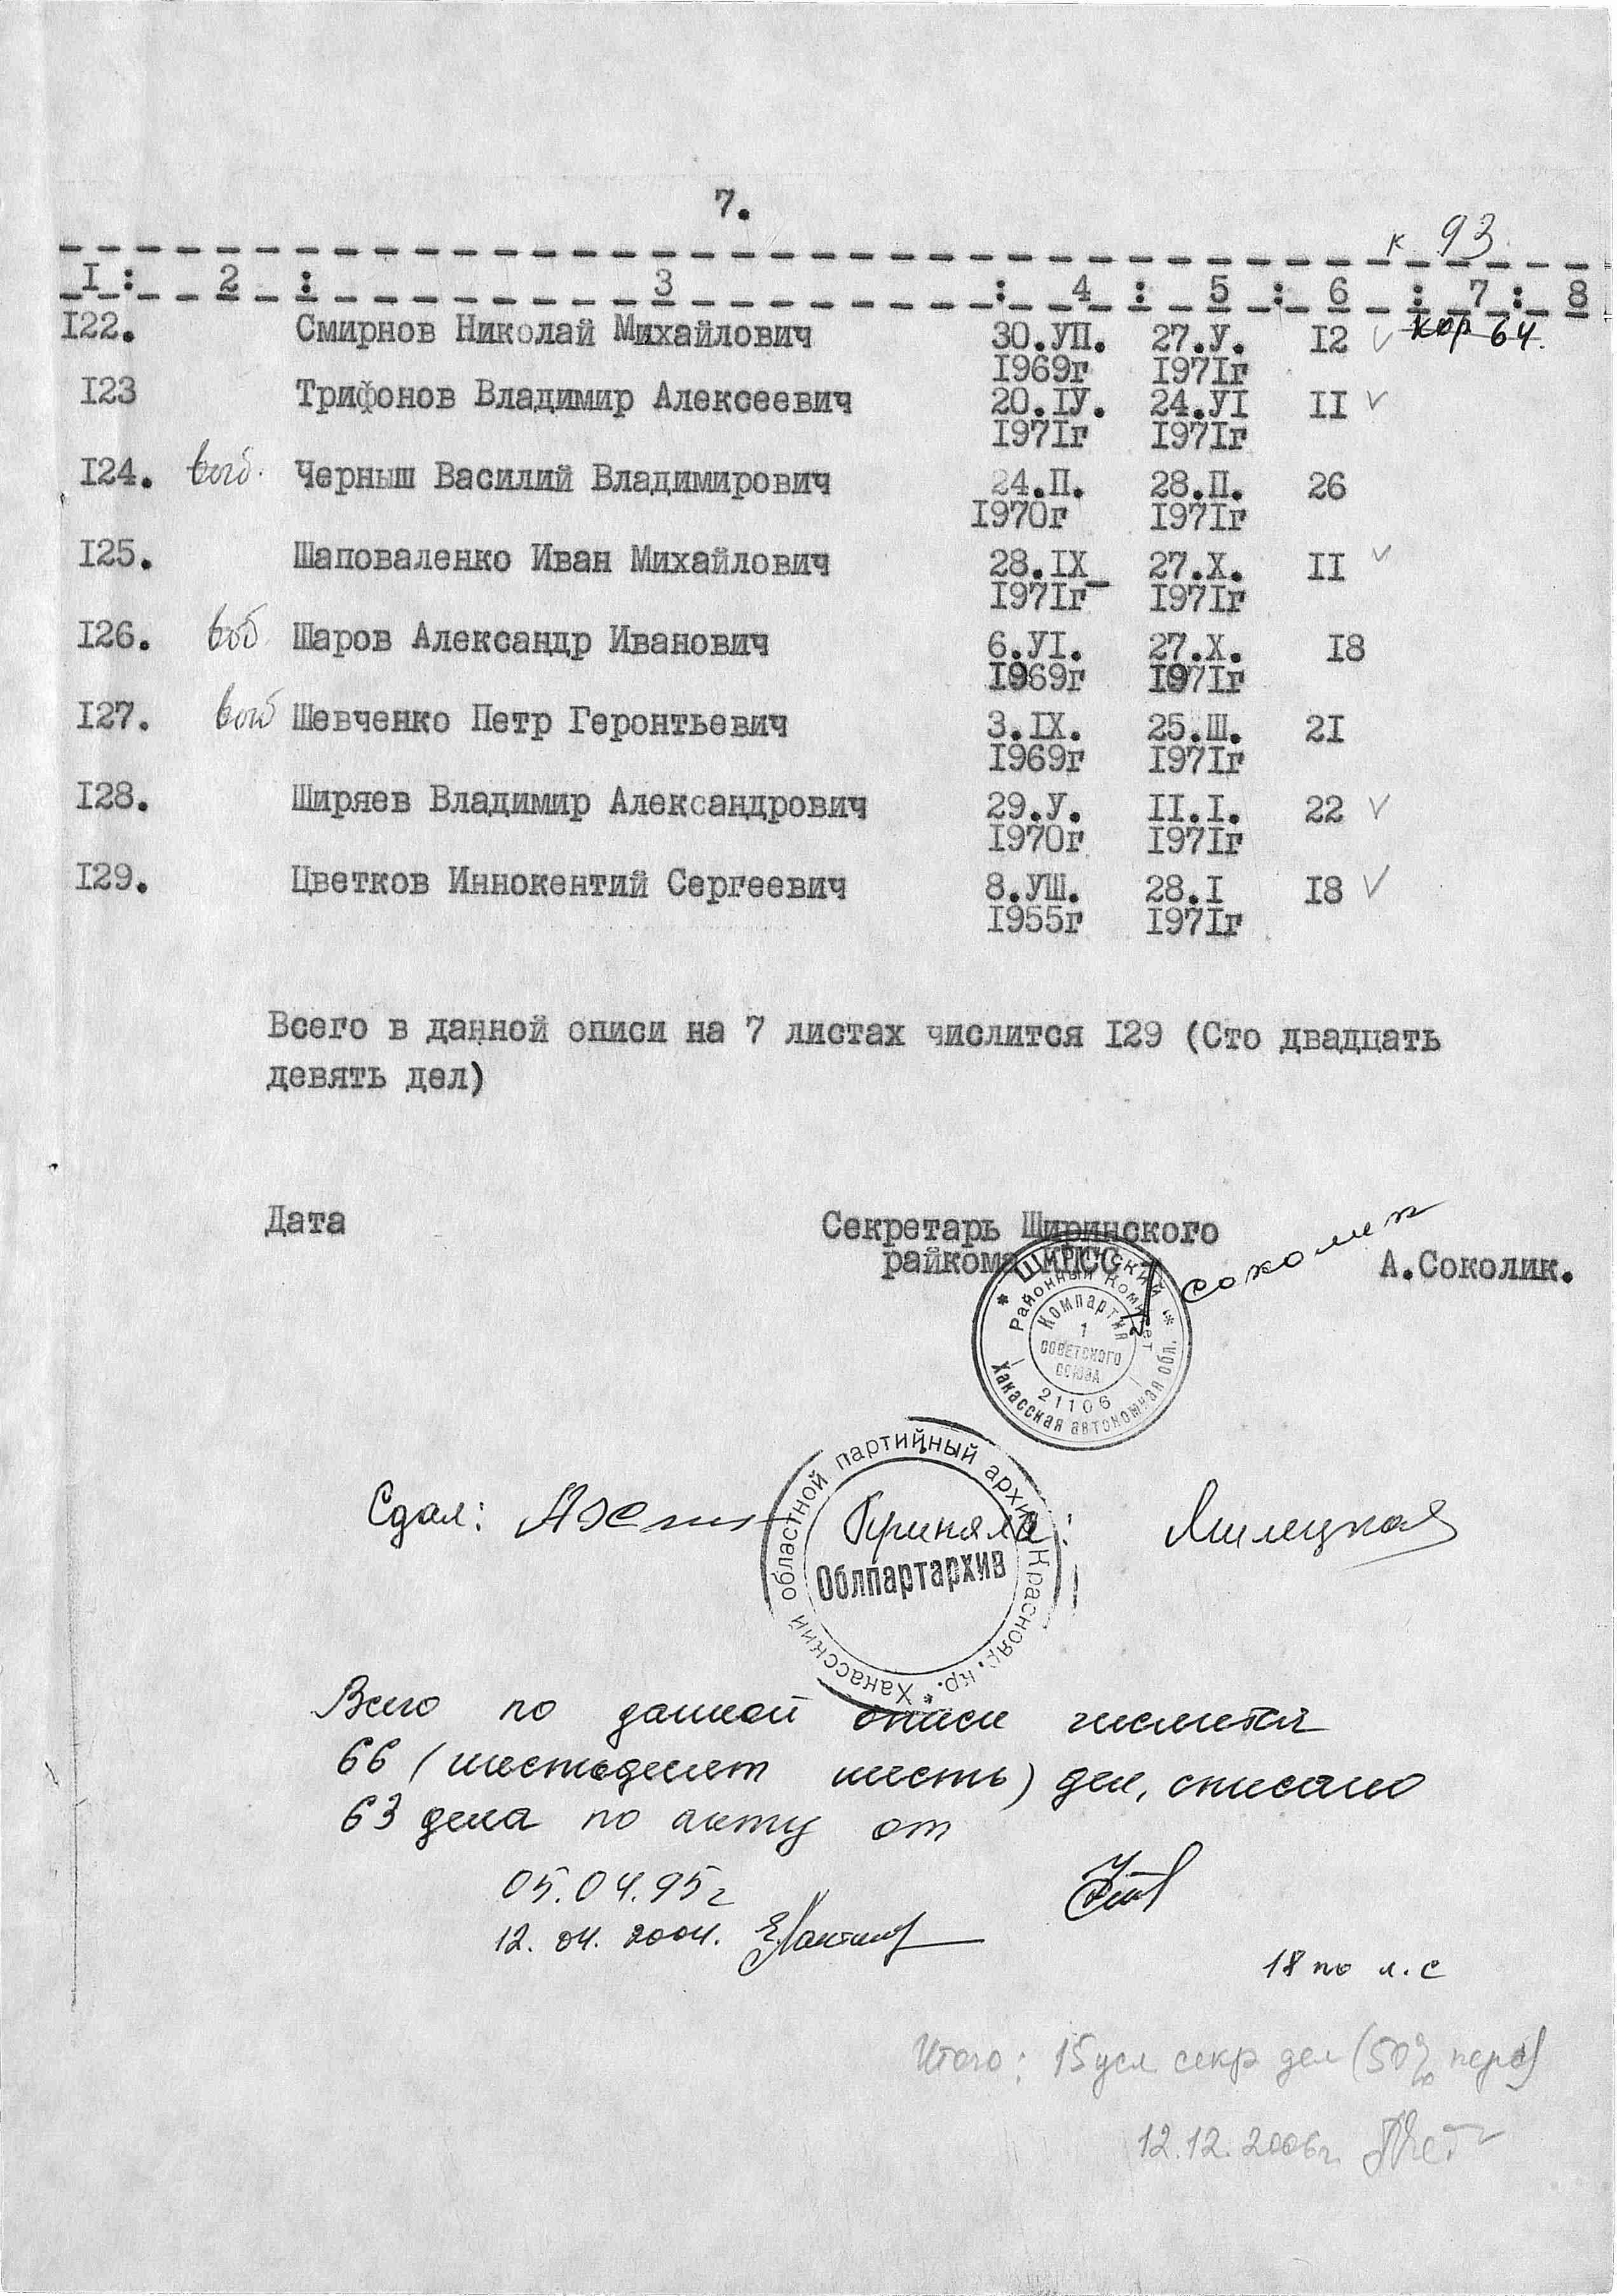 7.
к 93
I : 2 : 3 : 4 : 5 : 6 : 7 : 8
I22. Смирнов Николай Михайлович 30.УП. 27.У. I2 кор 64.
I969г I97Iг
I23 Трифонов Владимир Алексеевич 20.IУ. 24.УI II
I97Iг I97Iг
I24. Черныш Василий Владимирович 24.П. 28.П. 26
I970г I97Iг
I25. Шаповаленко Иван Михайлович 28.IX 27.X. II
I97Iг I97Iг
I26. Шаров Александр Иванович 6.УI. 27.X. I8
I969г I97Iг
I27. Шевченко Петр Геронтьевич 3.IX. 25.Ш. 2I
I969г I97Iг
I28. Ширяев Владимир Александрович 29.У. II.I. 22
I970г I97Iг
I29. Цветков Иннокентий Сергеевич 8.УШ. 28.I I8
I955г I97Iг
Всего в данной описи на 7 листах числится I29 (Сто двадцать
девять дел)
Дата Секретарь Ширинского
райкома КПСС Соколик А.Соколик.
* Ширинский * Хакасская автономная обл.
Районный Комитет
Компартия
1
СОВЕТСКОГО
СОЮЗА
21106
Сдал: Приняла:
Хакасский областной партийный архив Краснояр. кр. *
Облпартархив
Всего по данной описи числится
66 (шестьдесят шесть) дел, списано
63 дела по акту от
05.04.95г
12.04.2004.
18 по л.с
Итого: 15 усл секр дел (50%
12.12.2006г.